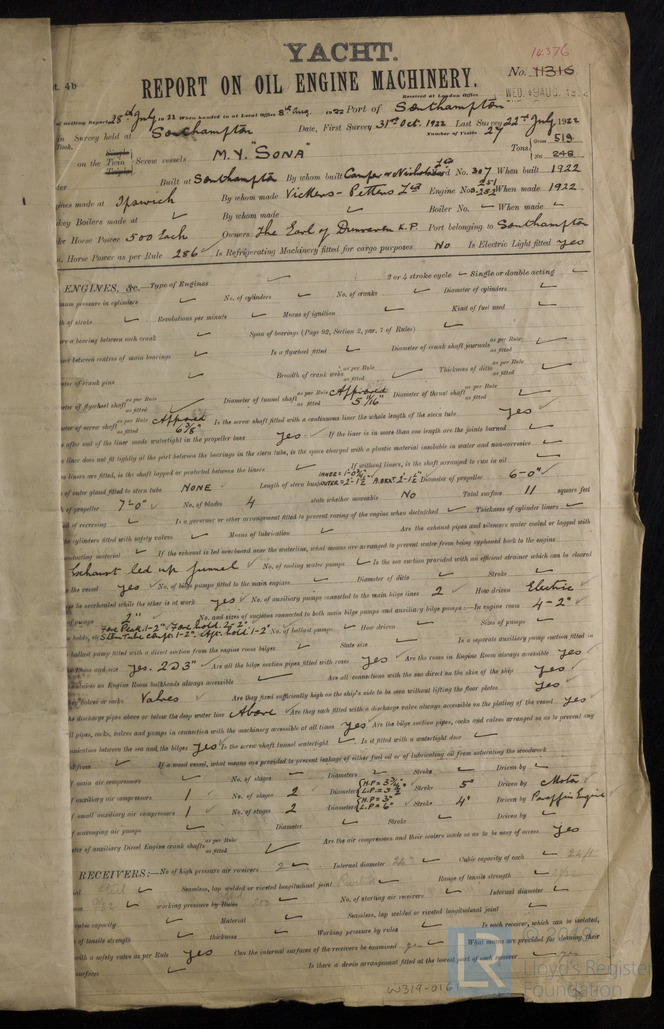 YACHT.
14376
t. 4b
REPORT ON OIL ENGINE MACHINERY.
No. 11316
Received at London Office WED. 9 AUG. 1922
of writing Report 28th July 1922 When handed in at Local Office 8th Aug. 1922 Port of Southampton
in Survey held at Southampton Date, First Survey 31st Oct. 1922 Last Survey 22nd July, 1922
Book. Number of Visits 27
on the Twin Screw vessels M.Y. "SONA" Tons Gross 519
Triple Net 248
Built at Southampton By whom built Camper & Nicholsons Ltd Yard No. 307 When built 1922
ines made at Ipswich By whom made Vickers-Petters Ltd Engine No. 251 252 When made 1922
key Boilers made at ✓ By whom made ✓ Boiler No. ✓ When made ✓
ke Horse Power 500 Each Owners The Earl of Dunraven K.P. Port belonging to Southampton
. Horse Power as per Rule 286 Is Refrigerating Machinery fitted for cargo purposes No Is Electric Light fitted yes
ENGINES, &c.—Type of Engines ✓ 2 or 4 stroke cycle ✓ Single or double acting ✓
mum pressure in cylinders ✓ No. of cylinders ✓ No. of cranks ✓ Diameter of cylinders ✓
th of stroke ✓ Revolutions per minute ✓ Means of ignition ✓ Kind of fuel used ✓
re a bearing between each crank ✓ Span of bearings (Page 92, Section 2, par. 7 of Rules) ✓
nce between centres of main bearings ✓ Is a flywheel fitted ✓ Diameter of crank shaft journals as per Rule as fitted ✓
eter of crank pins ✓ Breadth of crank webs as per Rule as fitted ✓ Thickness of ditto as per Rule as fitted ✓
eter of flywheel shaft as per Rule as fitted ✓ Diameter of tunnel shaft as per Rule Approved as fitted 5 11/16" Diameter of thrust shaft as per Rule as fitted ✓
eter of screw shaft as per Rule Approved as fitted 6 3/8" Is the screw shaft fitted with a continuous liner the whole length of the stern tube yes ✓
e after end of the liner made watertight in the propeller boss yes ✓ If the liner is in more than one length are the joints burned ✓
e liner does not fit tightly at the part between the bearings in the stern tube, is the space charged with a plastic material insoluble in water and non-corrosive ✓
o liners are fitted, is the shaft lapped or protected between the liners ✓ If without liners, is the shaft arranged to run in oil ✓
of outer gland fitted to stern tube NONE Length of stern bush Diameter of propeller 6-0" ✓
of propeller 7-0" ✓ No. of blades 4 state whether moveable No Total surface 11 square feet
od of reversing ✓ Is a governor or other arrangement fitted to prevent racing of the engine when declutched ✓ Thickness of cylinder liners ✓
he cylinders fitted with safety valves ✓ Means of lubrication ✓ Are the exhaust pipes and silencers water cooled or lagged with
onducting material ✓ If the exhaust is led overboard near the waterline, what means are arranged to prevent water from being syphoned back to the engine
Exhaust led up funnel ✓ No. of cooling water pumps ✓ Is the sea suction provided with an efficient strainer which can be cleared
n the vessel yes ✓ No. of bilge pumps fitted to the main engines ✓ Diameter of ditto ✓ Stroke ✓
ne be overhauled while the other is at work yes ✓ No. of auxiliary pumps connected to the main bilge lines 2 ✓ How driven Electric ✓
of pumps 2" No. and sizes of suctions connected to both main bilge pumps and auxiliary bilge pumps:—In engine room 4-2" ✓
Fore Peak. 1-2". Fore hold. 2-2".
n holds, etc. Stern Tube Compt. 1-2". Aft. hold 1-2" No. of ballast pumps ✓ How driven ✓ Sizes of pumps ✓
ballast pump fitted with a direct suction from the engine room bilges ✓ State size ✓ Is a separate auxiliary pump suction fitted in
and size yes. 2 @ 3" Are all the bilge suction pipes fitted with roses yes ✓ Are the roses in Engine Room always accessible yes ✓
on Engine Room bulkheads always accessible ✓ Are all connections with the sea direct on the skin of the ship yes ✓
valves or cocks Valves ✓ Are they fixed sufficiently high on the ship's side to be seen without lifting the floor plates yes ✓
he discharge pipes above or below the deep water line Above Are they each fitted with a discharge valve always accessible on the plating of the vessel yes ✓
ll pipes, cocks, valves and pumps in connection with the machinery accessible at all times yes Are the bilge suction pipes, cocks and valves arranged so as to prevent any
unication between the sea and the bilges yes ✓ Is the screw shaft tunnel watertight ✓ Is it fitted with a watertight door ✓
✓ If a wood vessel, what means are provided to prevent leakage of either fuel oil or of lubricating oil from saturating the woodwork ✓
f main air compressors ✓ No. of stages ✓ Diameters ✓ Stroke ✓ Driven by ✓
f auxiliary air compressors 1 ✓ No. of stages 2 Diameters Stroke 5" Driven by Motor ✓
f small auxiliary air compressors 1 ✓ No. of stages 2 Diameters H.P = 3" L.P. = 6" Stroke 4" Driven by Paraffin Engine
f scavenging air pumps ✓ Diameter ✓ Stroke ✓ Driven by ✓
eter of auxiliary Diesel Engine crank shafts as per Rule as fitted ✓ Are the air compressors and their coolers made so as to be easy of access yes
RECEIVERS:—No. of high pressure air receivers 2 Internal diameter Cubic capacity of each
ial Steel Seamless, lap welded or riveted longitudinal joint Range of tensile strength
working pressure by Rules No. of starting air receivers Internal diameter ✓
ubic capacity ✓ Material ✓ Seamless, lap welded or riveted longitudinal joint ✓
of tensile strength ✓ thickness ✓ Working pressure by rules ✓ Is each receiver, which can be isolated,
with a safety valve as per Rule yes Can the internal surfaces of the receivers be examined yes What means are provided for cleaning their
surfaces ✓ Is there a drain arrangement fitted at the lowest part of each receiver
W319-0161
LR
Lloyd's Register
Foundation